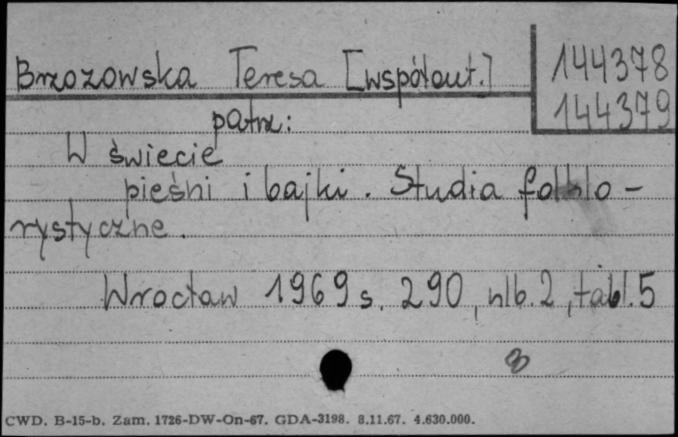 Brzozowska Teresa [współaut.]
144378
144379
patrz:
W świecie
pieśni i bajki. Studia folklo-
rystyczne.
Wrocław 1969 s. 290, nlb. 2, tabl. 5
CWD. B-15-b. Zam. 1726-DW-On-67. GDA-3198. 8.11.67. 4.630.000.